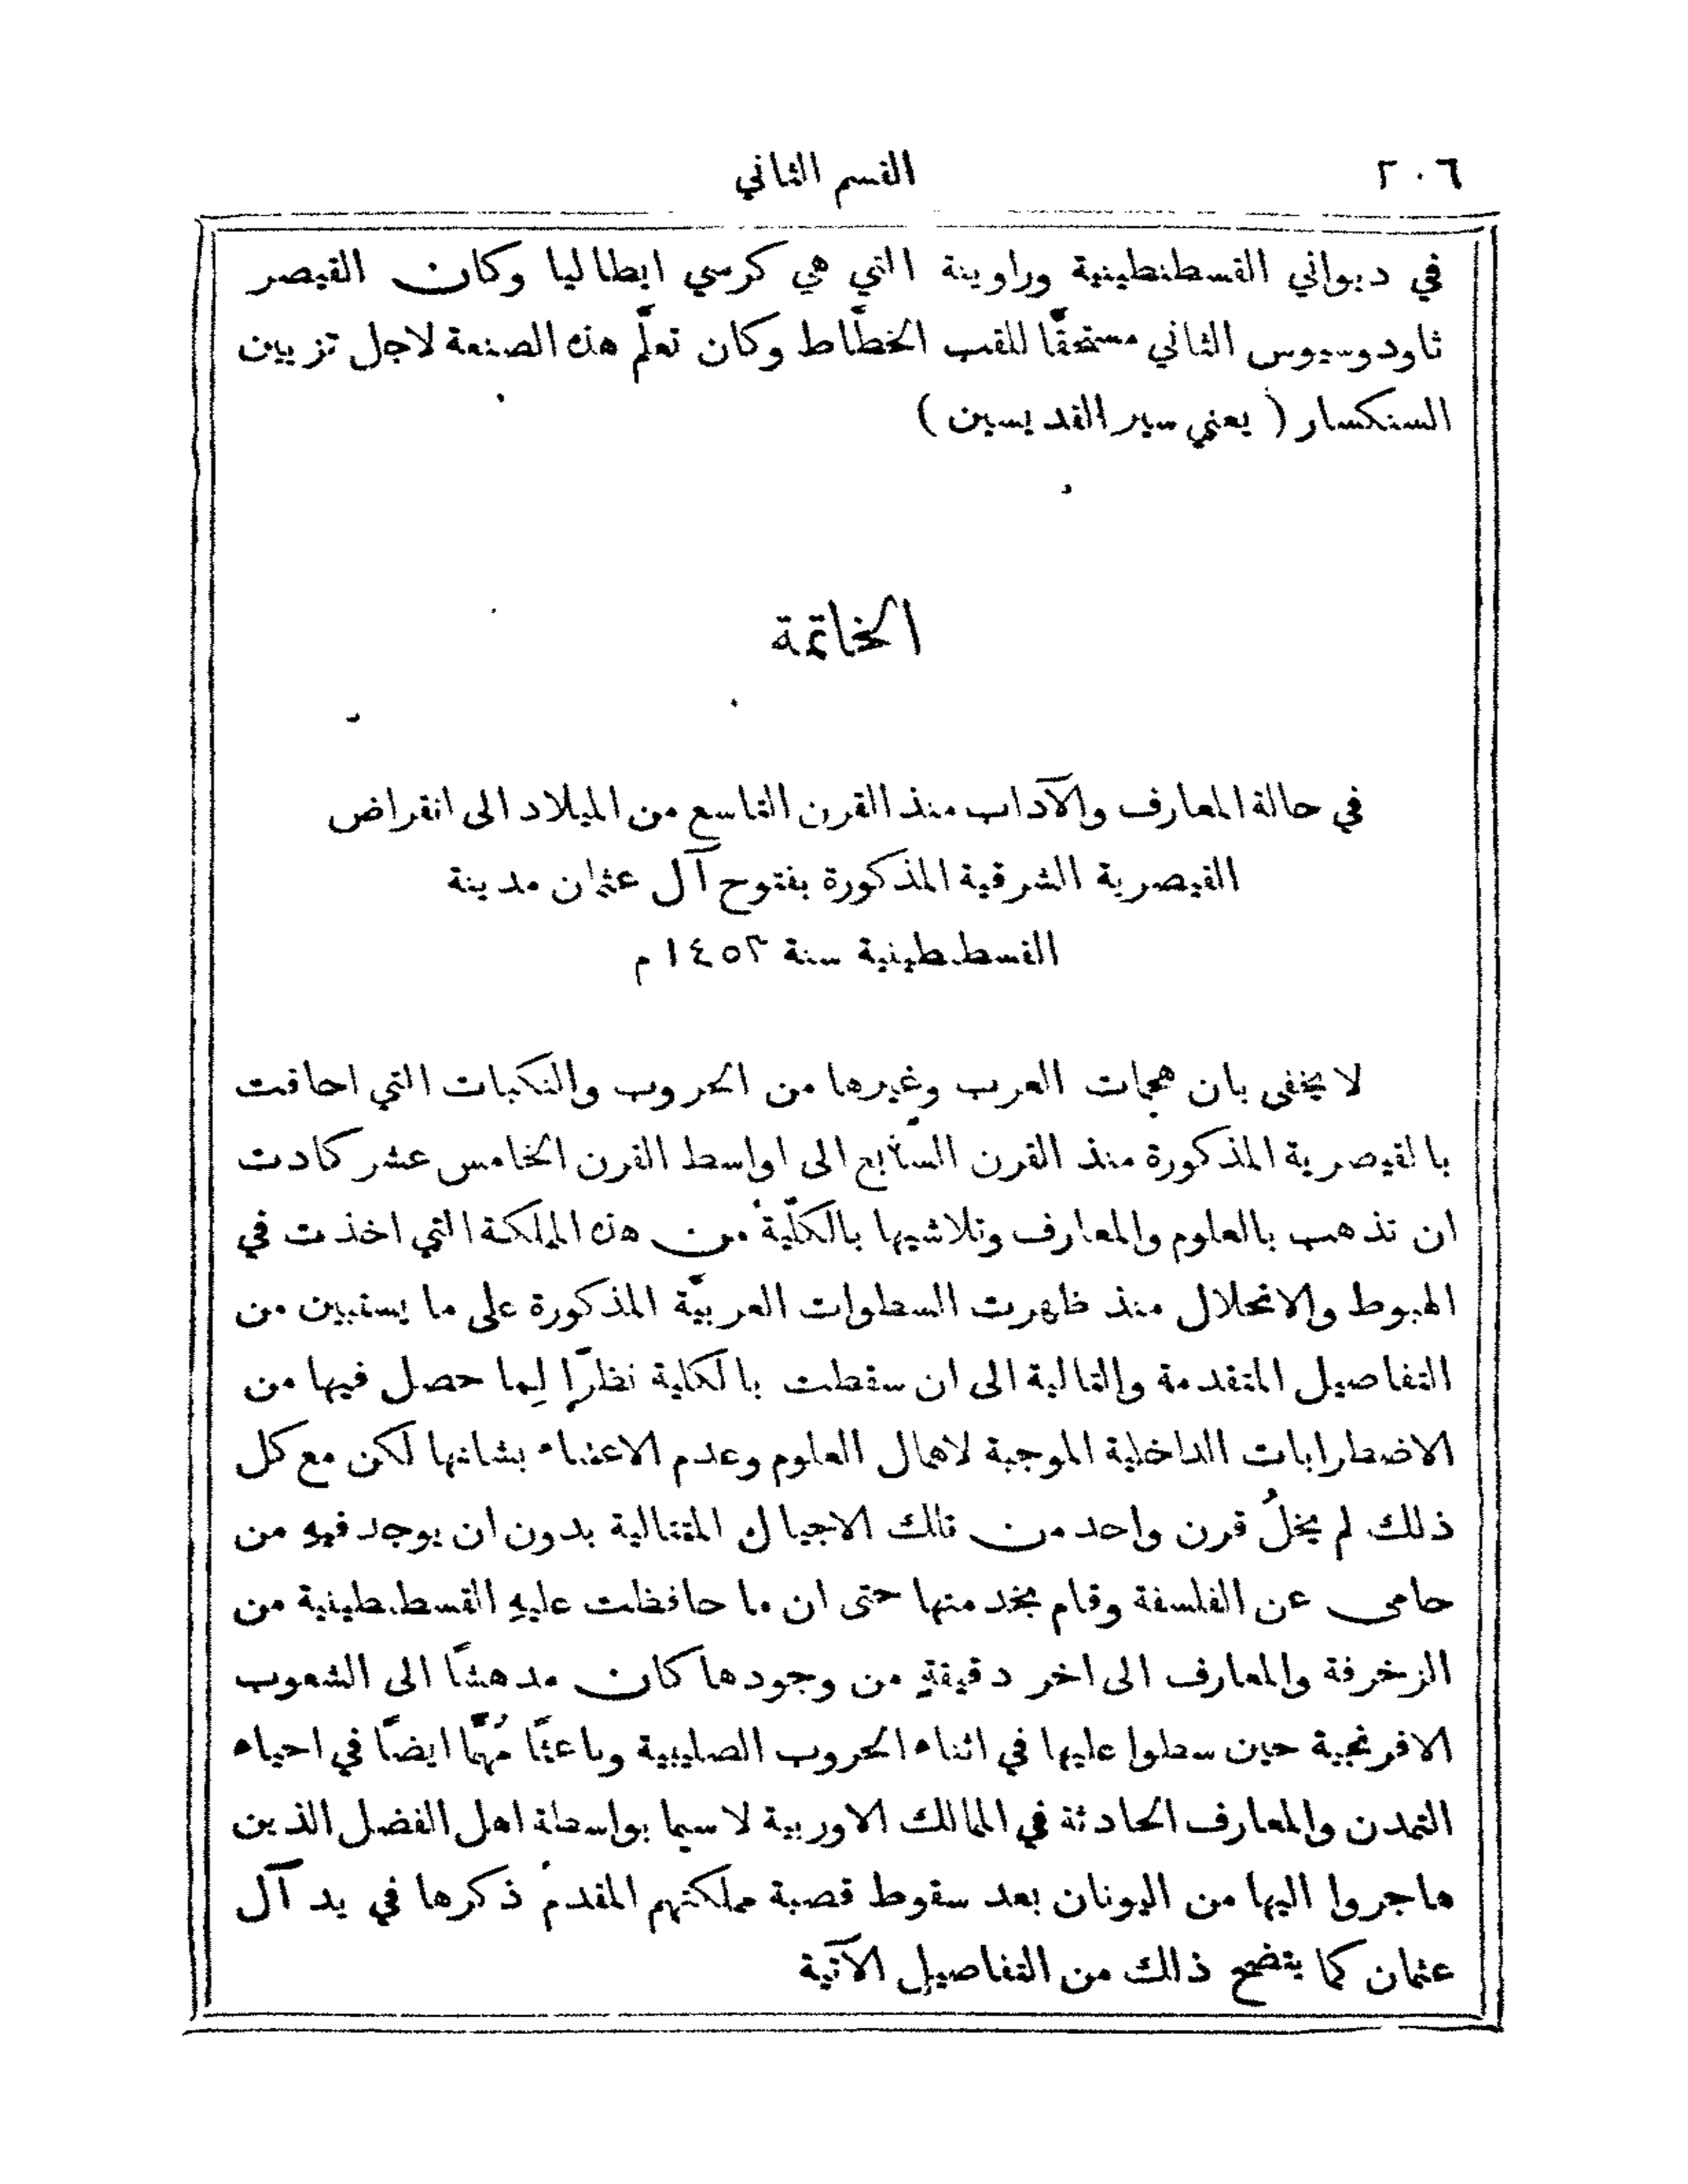 ٢٠٦ القسم الثاني
في ديواني القسطنطينية وراوينة التي هي كرسي ايطاليا وكان القيصر
ثاودوسيوس الثاني مستحقًّا للقب الخطّاط وكان تعلّم هذه الصنعة لاجل تزيين
السنكسار ( يعني سير القديسين )
الخاتمة
في حالة المعارف والآداب منذ القرن التاسع من الميلاد الى انقراض
القيصرية الشرقية المذكورة بفتوح آل عثمان مدينة
القسططينية سنة ١٤٥٣ م
لا يخفى بان هجمات العرب وغيرها من الحروب والنكبات التي احاقت
بالقيصرية المذكورة منذ القرن السابع الى اواسط القرن الخامس عشر كادت
ان تذهب بالعلوم والمعارف وتلاشيها بالكلّية من هذه المملكة التي اخذت في
الهبوط والانحلال منذ ظهرت السطوات العربيّة المذكورة على ما يستبين من
التفاصيل المتقدمة والتالية الى ان سقطت بالكلية نظرًا لِما حصل فيها من
الاضطرابات الداخلية الموجبة لاهمال العلوم وعدم الاعتناء بشانها لكن مع كل
ذلك لم يخلُ قرن واحد من تلك الاجيال المتتالية بدون ان يوجد فيه من
حامى عن الفلسفة وقام بخدمتها حتى ان ما حافظت عليهِ القسططينية من
الزخرفة والمعارف الى اخر دقيقةٍ من وجودها كان مدهشًا الى الشعوب
الافرنجية حين سطوا عليها في اثناء الحروب الصليبية وباعثًا مُهمًّا ايضًا في احياء
التمدن والمعارف الحادثة في الممالك الاوربية لا سيما بواسطة اهل الفضل الذين
هاجروا اليها من اليونان بعد سقوط قصبة مملكتهم المقدم ذكرها في يد آل
عثمان كما يتضح ذلك من التفاصيل الآتية